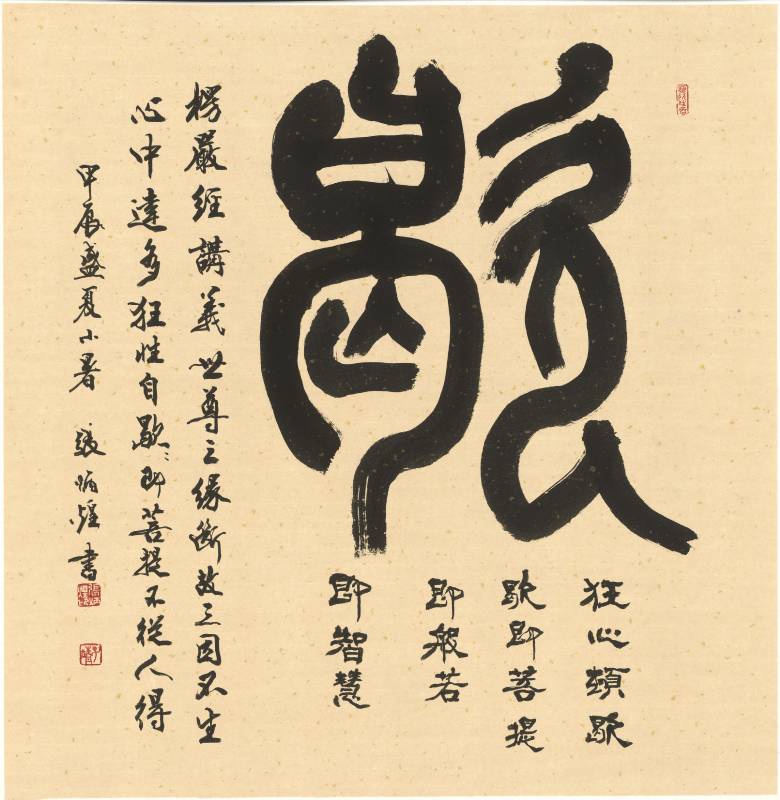 歇
狂心頓歇
歇即菩提
即般若
即智慧
楞嚴經講義世尊三緣斷故三因不生
心中達多狂性自歇〻即菩提不從人得
甲辰盛夏小暑 張炳煌書